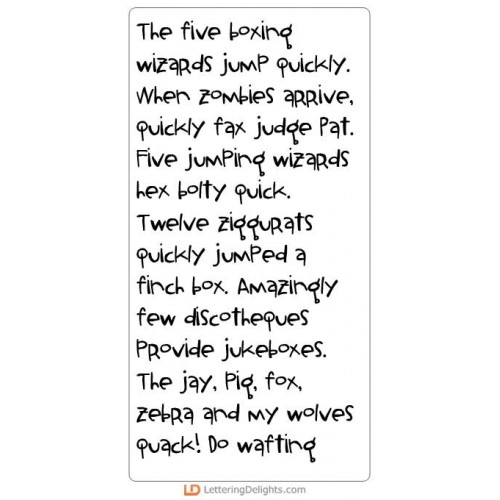 The five boxing
wizards jump quickly.
When zombies arrive,
quickly fax judge Pat.
Five jumping wizards
hex bolty quick.
Twelve ziggurats
quickly jumped a
finch box. Amazingly
few discotheques
provide jukeboxes.
The jay, pig, fox,
zebra and my wolves
quack! Do wafting
LD LetteringDelights.com